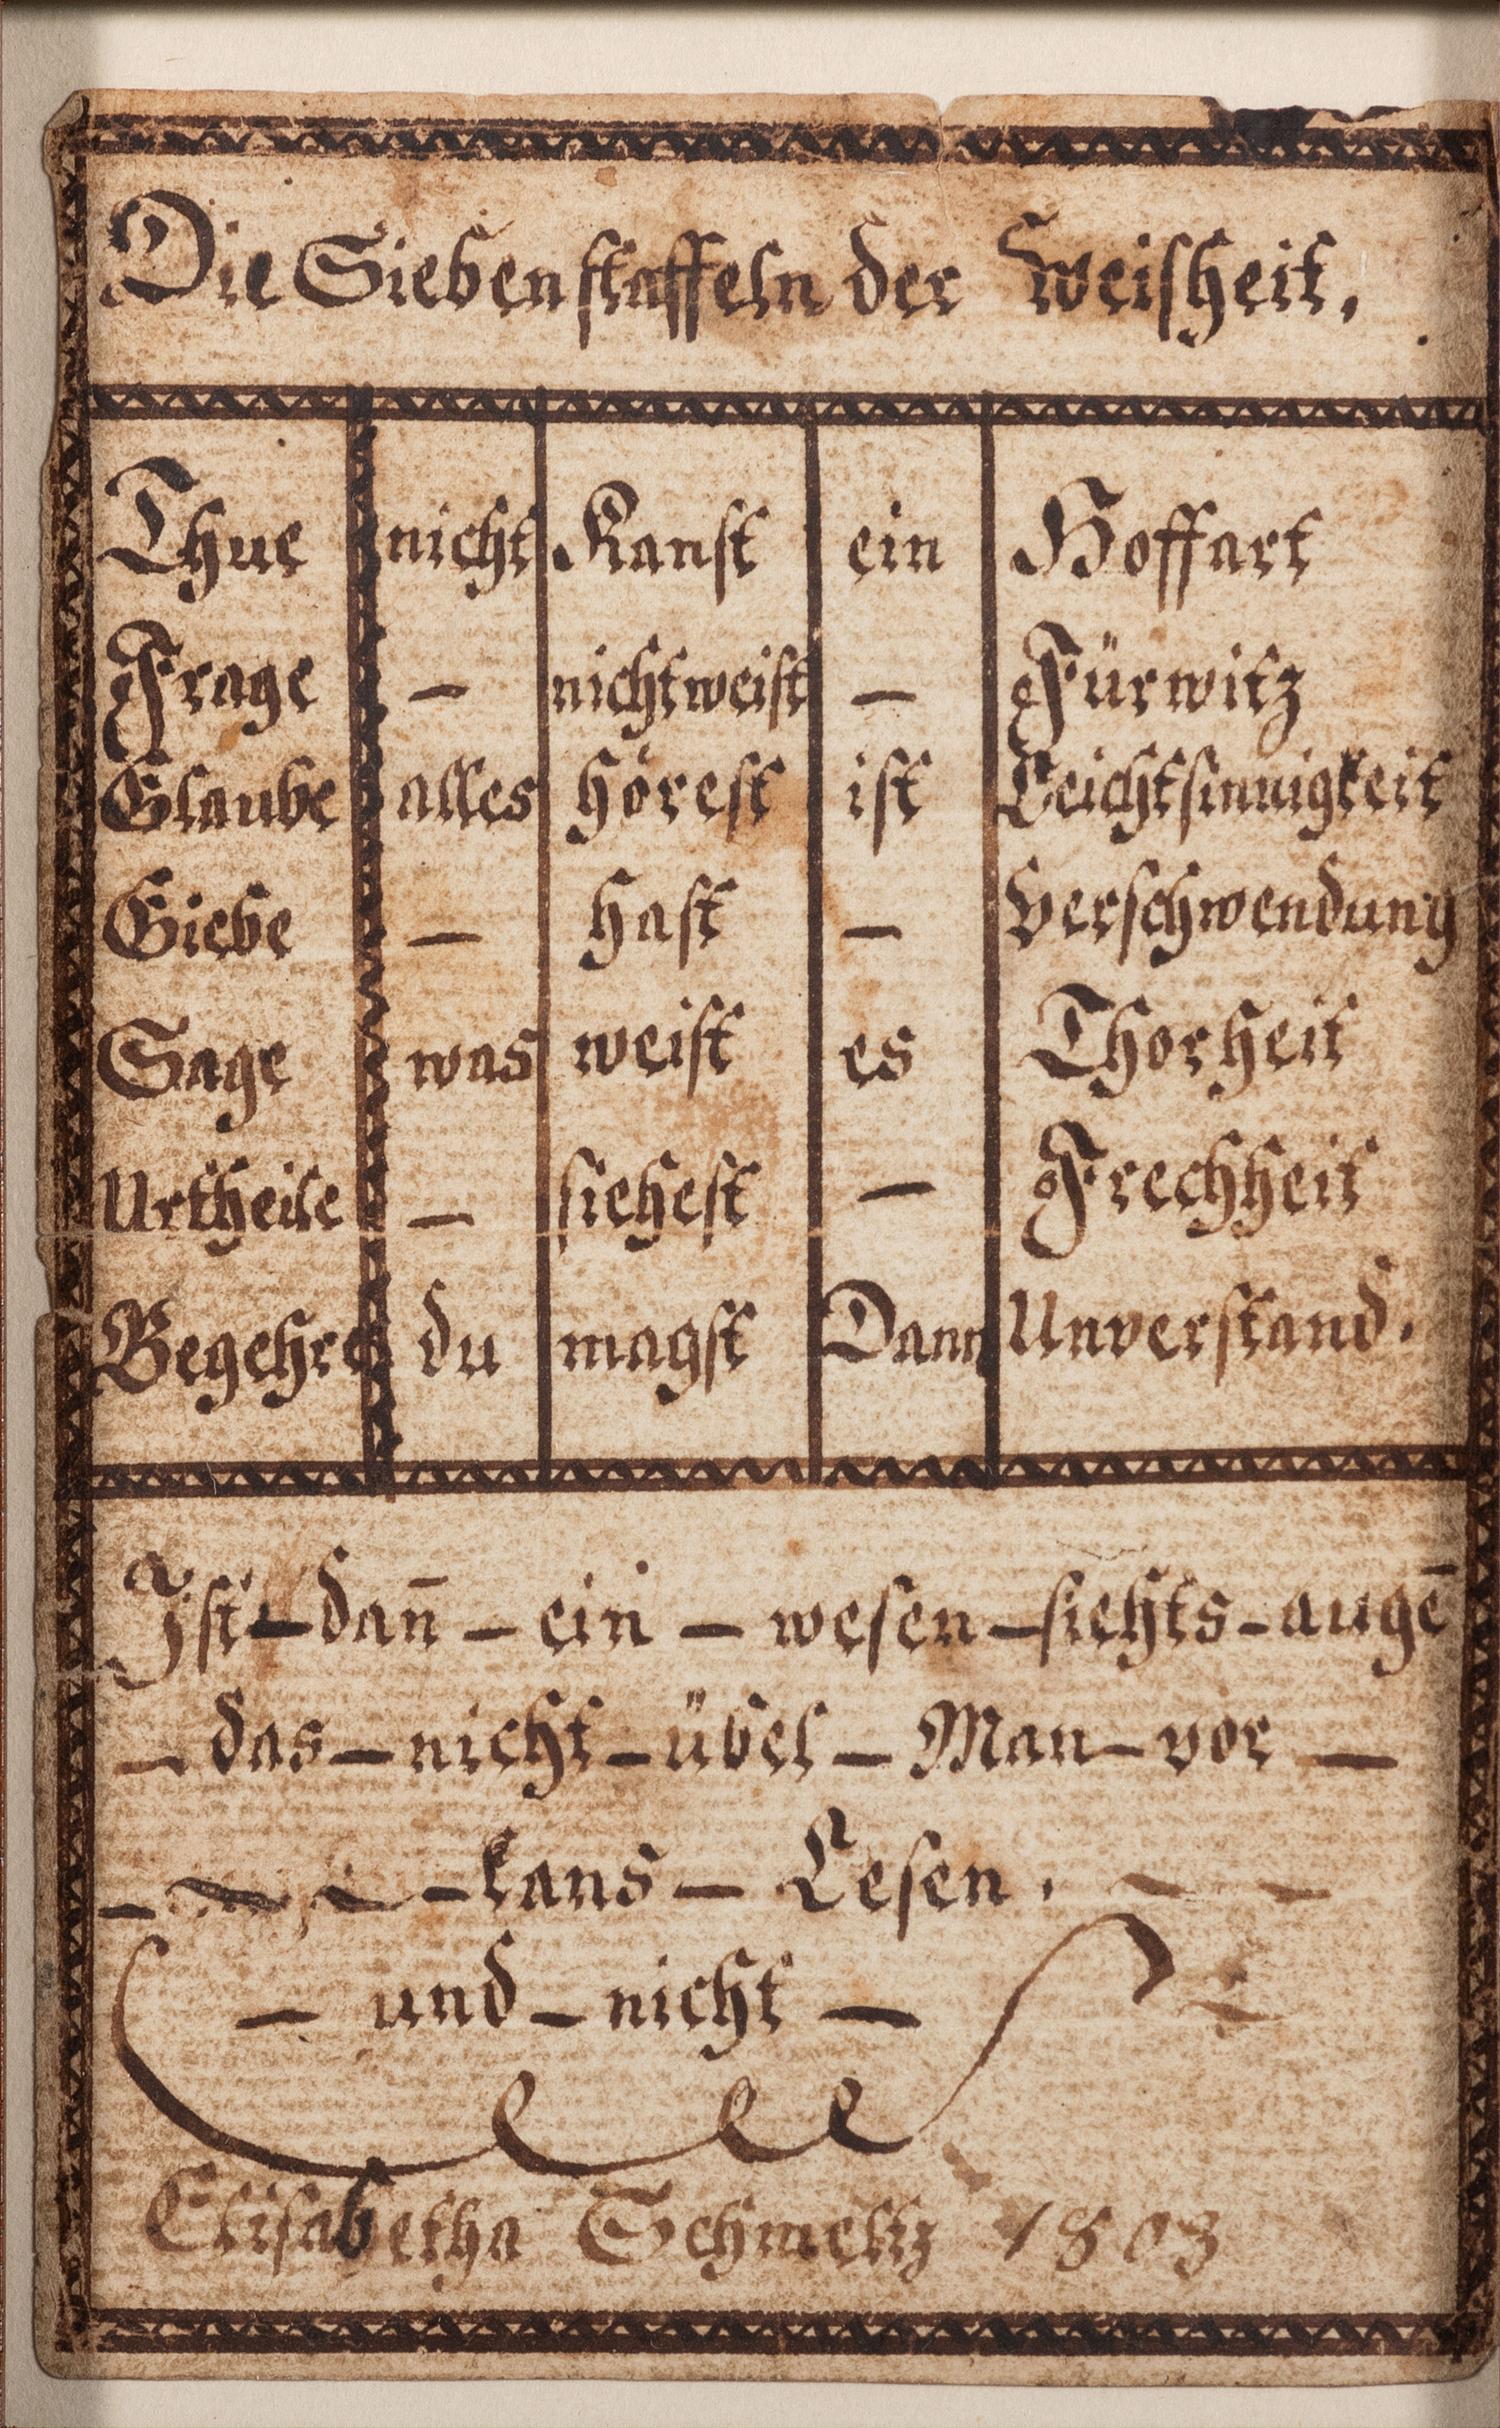 Die Sieben staffeln der Weisheit,
Thue nicht Kanst ein Hoffart
Frage — nicht weist — Fürwitz
Glaube alles hörest ist Leichtsinnigkeit
Giebe — hast — Verschwendung
Sage was weist es Thorheit
Urtheile — siehest — Frechheit
Begehre du magst Dann Unverstand.
Ist — dan̄ — ein — wesen — siehts - augē
— das — nicht — übel — Man — vor —
— kans — Lesen.
— und — nicht —
Elisabetha Schmeltz 1803